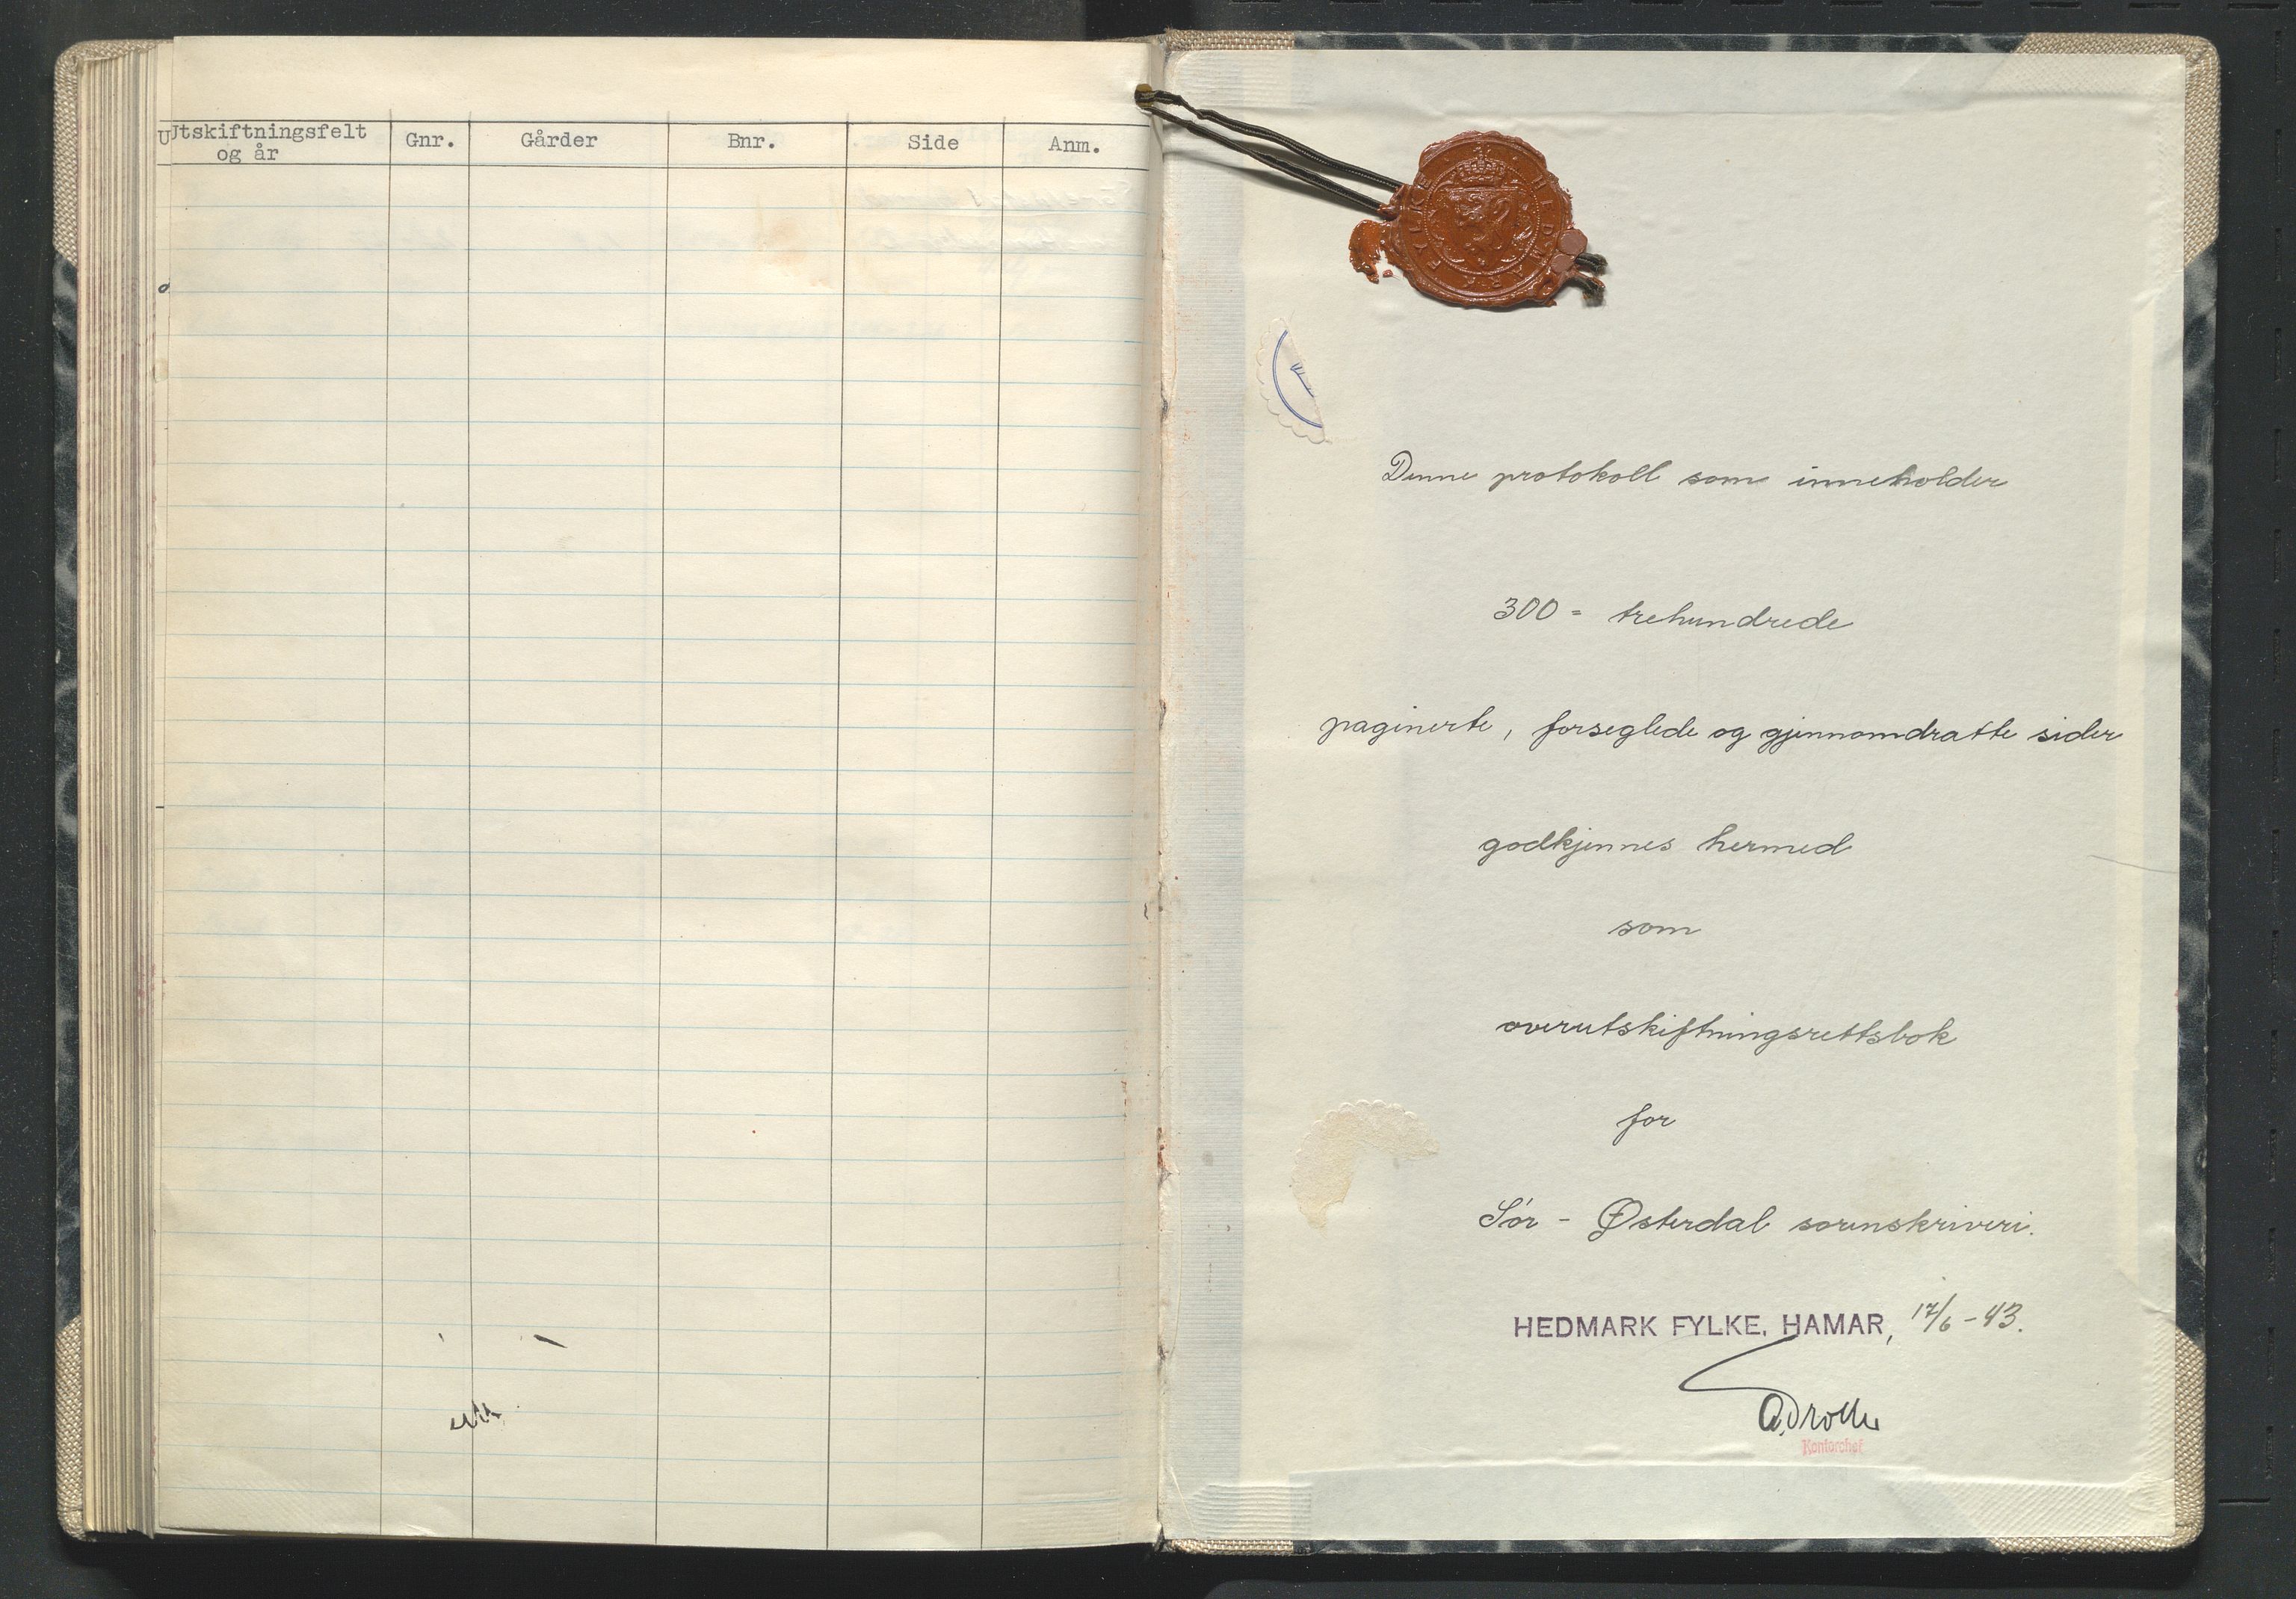 Utskiftningsfelt og år
Gnr.
Gårder
Bnr.
Side
Anm.
HEDMARK FYLKE
Denne protokoll som inneholder
300 = trehundrede
paginerte, forseglede og gjennomdratte sider
godkjennes hermed
som
overutskiftningsrettsbok
for
Sør - Østerdal sorenskriveri.
HEDMARK FYLKE, HAMAR, 17/6 - 43.
Kontorchef